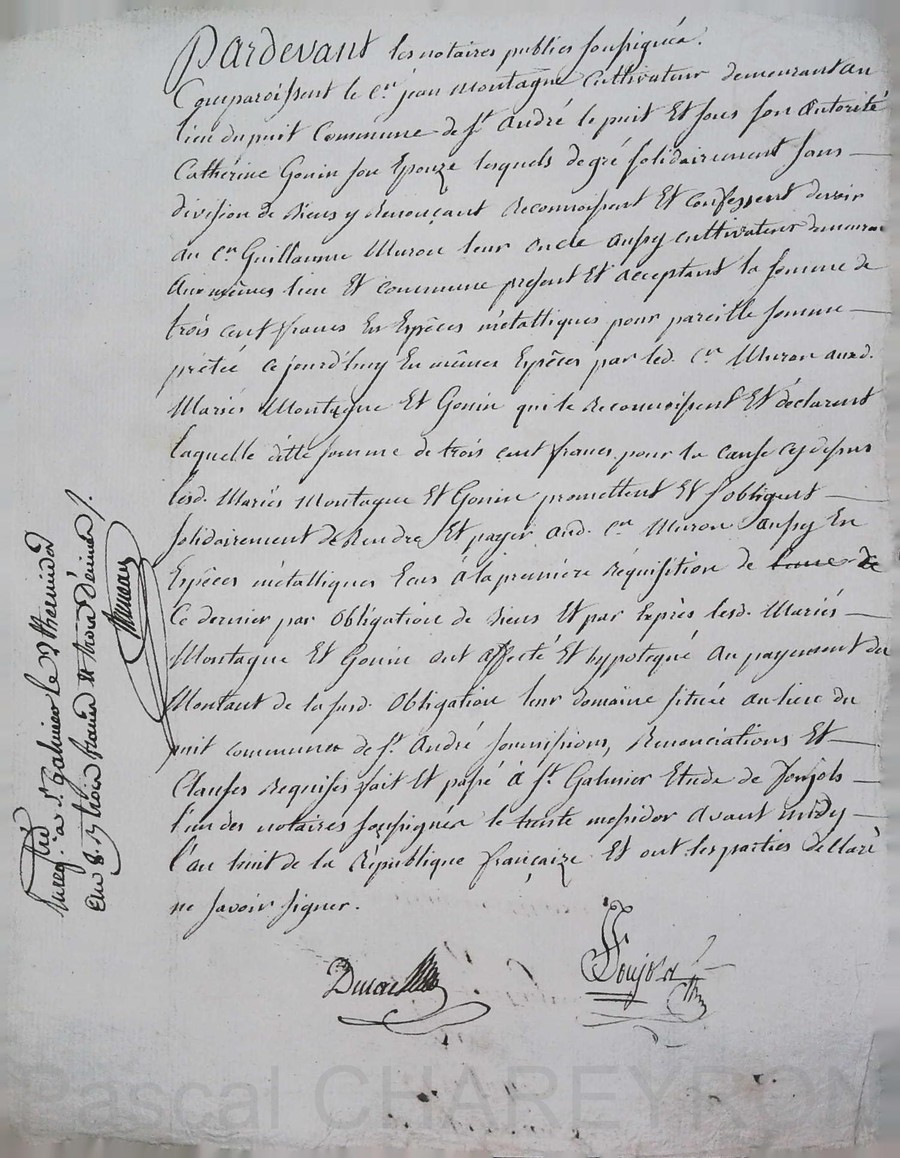 Pardevant les notaires publics soussignés.
Comparoissent le c.en jean Montagne Cultivateur demeurant au
lieu du puit Commune de S.t André le puit Et sous son Autorité
Cathérine Gonin son Epouze lesquels de gré solidairement sans —
division de Biens y Renonçant Reconnoissent Et Confessent devoir
au c.en Guillaume Muron leur oncle aussy cultivateur demeurant
Aux mêmes lieu Et commune présent Et acceptant la somme de
trois cent francs En Espèces métalliques pour pareille somme —
prêtée ce jourd'huy En mêmes Espèces par led. c.en Muron auxd.
Mariés Montagne Et Gonin qui le Reconnoissent Et déclarent
laquelle ditte somme de trois cent francs pour la cause cy dessus
lesd. Mariés Montagne Et Gonin promettent Et s'obligent —
solidairement de Rendre Et payer aud. c.en Muron aussy En
Espèces métalliques Ecus à la première Réquisition de
Ce dernier par Obligation de Biens Et par Exprès lesd. Mariés —
Montagne Et Gonin ont Affecté Et hypotequé Au payement du
Montant de la susd. Obligation leur domaine située au lieu du
puit commune de S.t André soumissions, Renonciations Et —
Clauses Requises fait Et passé à S.t Galmier Etude de Ponjols —
l'un des notaires soussignés le trente messidor Avant midy —
l'an huit de la République françaize Et ont les parties déclaré
ne savoir signer.
Enregistré à S.t Galmier le 9 thermidor
an 8. trois francs et trois décimes